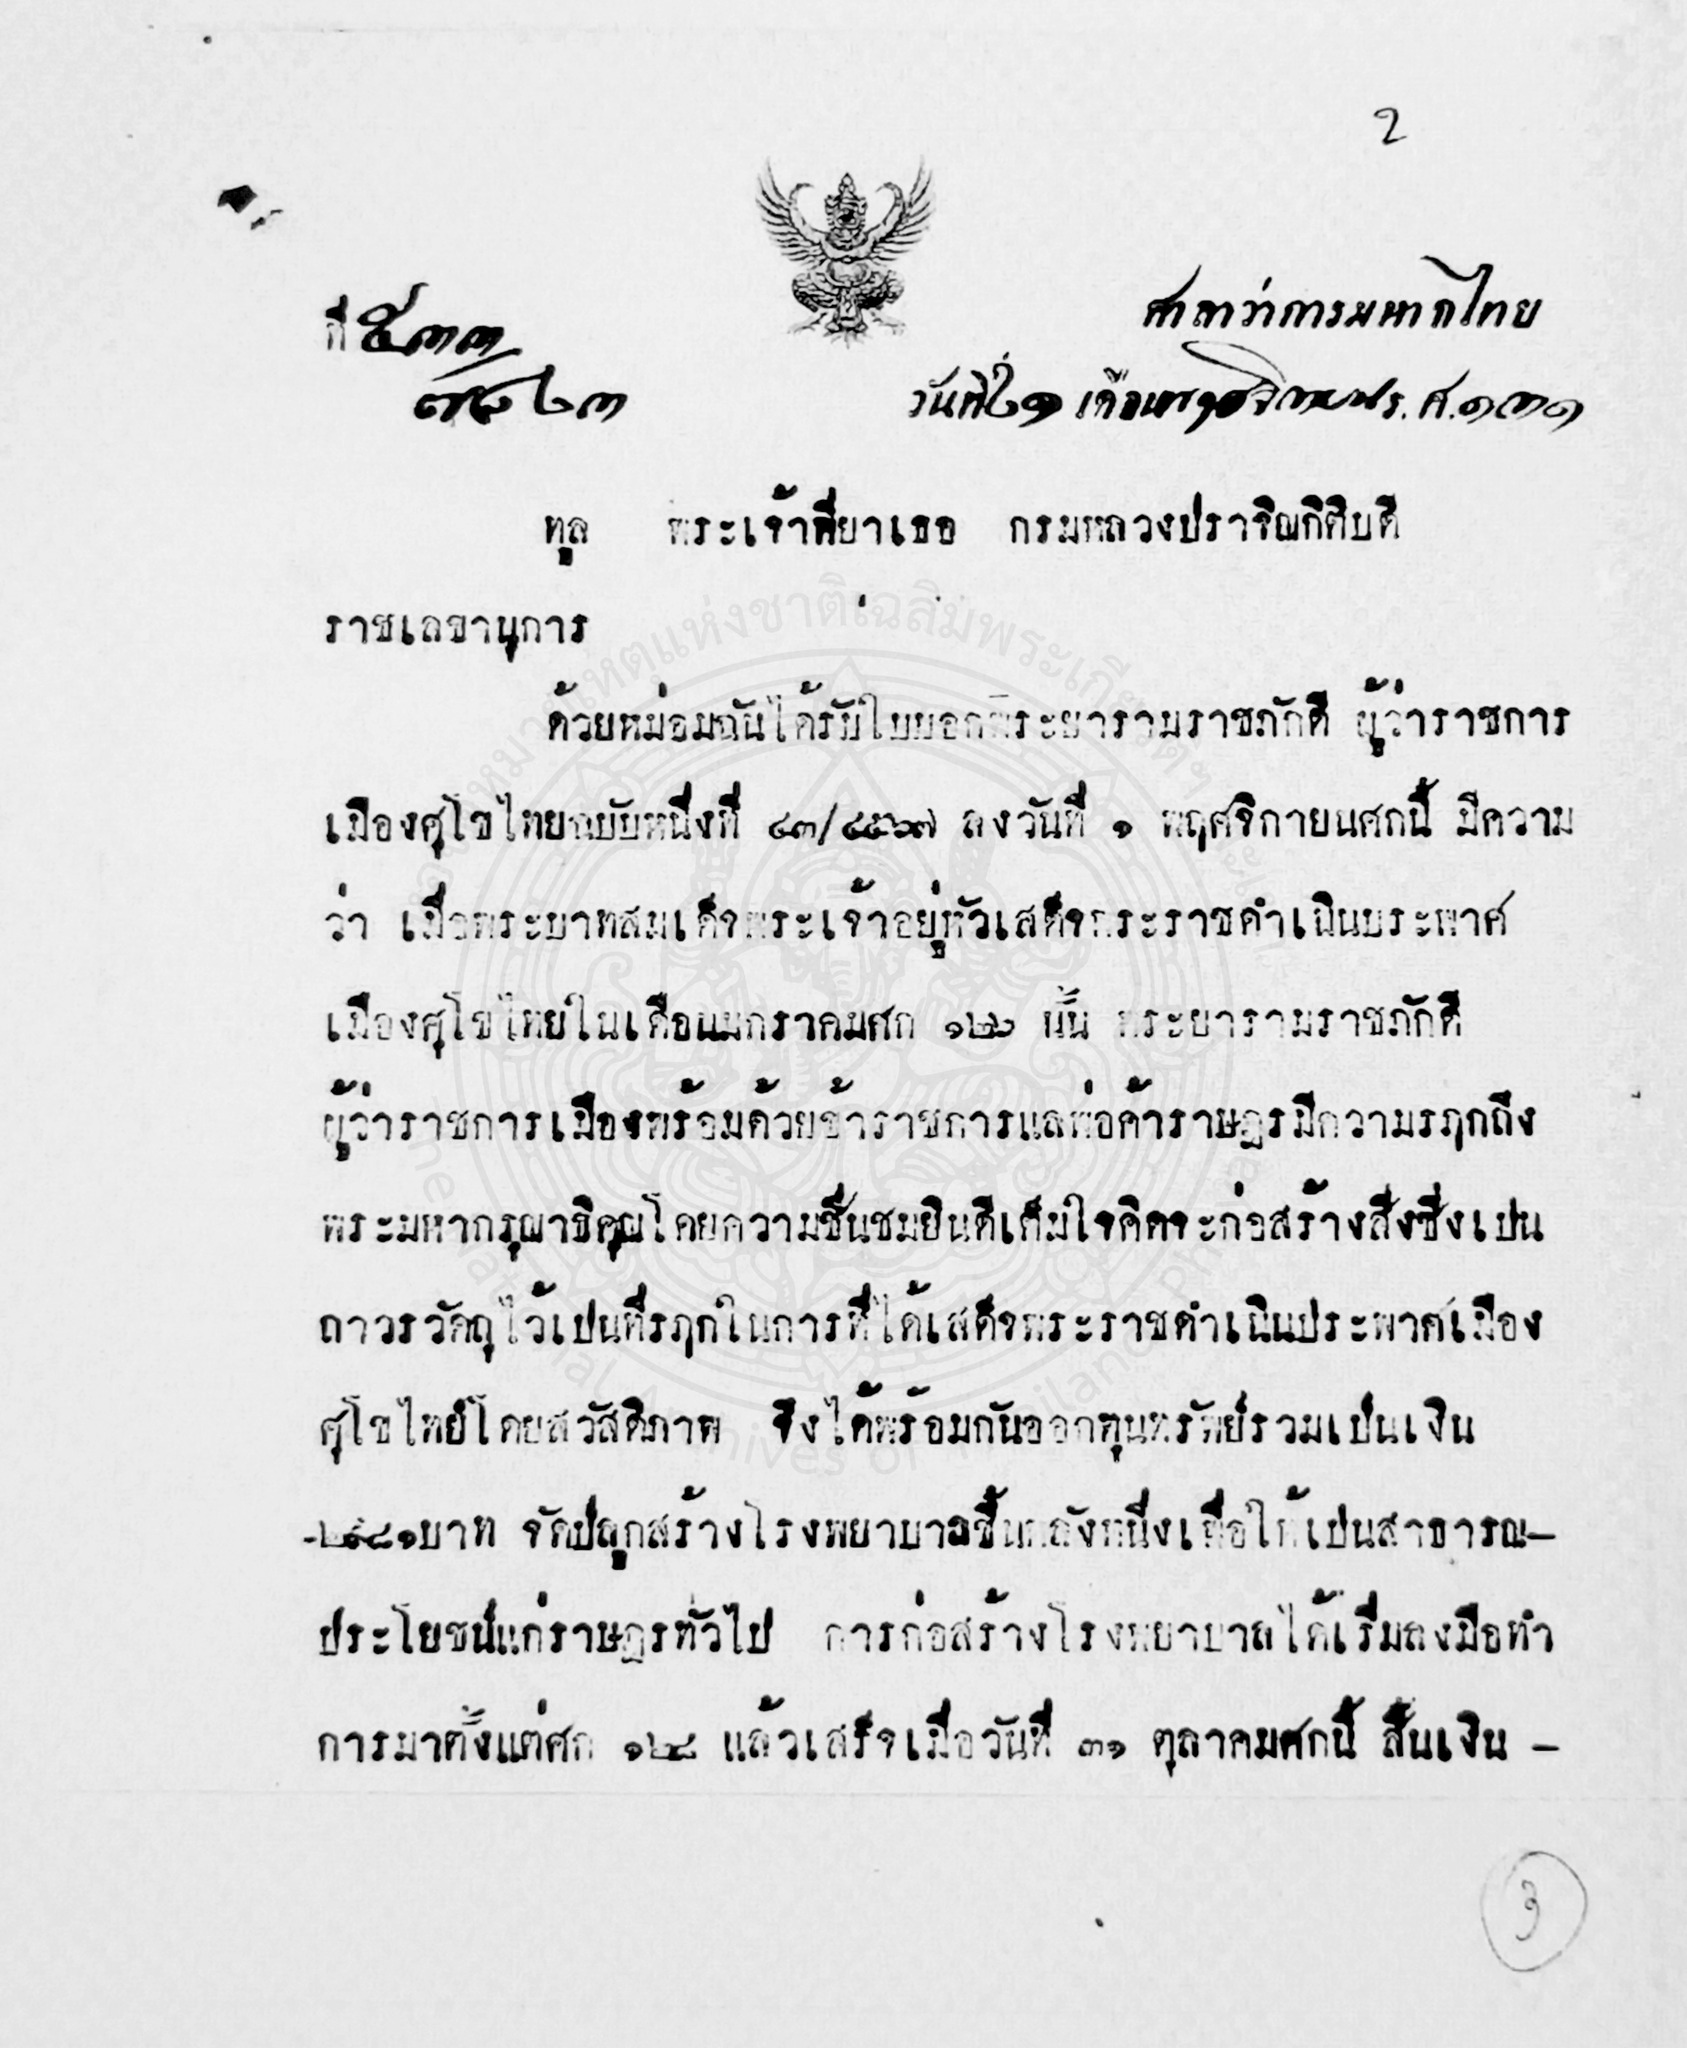 2
ศาลาว่าการมหาดไทย
ที่ ๕๓๓
วันที่ ๒๑ เดือนพฤศจิกายน ร.ศ. ๑๓๑
ทูล พระเจ้าพี่ยาเธอ กรมหลวงปราจิณกิติบดี
ราชเลขานุการ
ด้วยหม่อมฉันได้รับใบบอกพระยารามราชภักดี ผู้ว่าราชการ
เมืองศุโขไทยฉบับหนึ่งที่ ๔๓/๔๕๖๗ ลงวันที่ ๑ พฤศจิกายนศกนี้ มีความ
ว่า เมื่อพระบาทสมเด็จพระเจ้าอยู่หัวเสด็จพระราชดำเนินประพาศ
เมืองศุโขไทยในเดือนมกราคมศก ๑๒๖ นั้น พระยารามราชภักดี
ผู้ว่าราชการเมืองพร้อมด้วยข้าราชการแลพ่อค้าราษฎรมีความรฦกถึง
พระมหากรุณาธิคุณโดยความชื่นชมยินดีเต็มใจคิดจะก่อสร้างสิ่งซึ่งเปน
ถาวรวัตถุไว้เปนที่รฦกในการที่ได้เสด็จพระราชดำเนินประพาศเมือง
ศุโขไทยโดยสวัสดิภาพ จึงได้พร้อมกันออกทุนทรัพย์รวมเป็นเงิน
บาท จัดปลูกสร้างโรงพยาบาลขึ้นหลังหนึ่งเพื่อให้เปนสาธารณ-
ประโยชน์แก่ราษฎรทั่วไป การก่อสร้างโรงพยาบาลได้เริ่มลงมือทำ
การมาตั้งแต่ศก ๑๒๘ แล้วเสร็จเมื่อวันที่ ๓๑ ตุลาคมศกนี้ สิ้นเงิน -
หอจดหมายเหตุแห่งชาติเฉลิมพระเกียรติฯ
The National Archives of Thailand